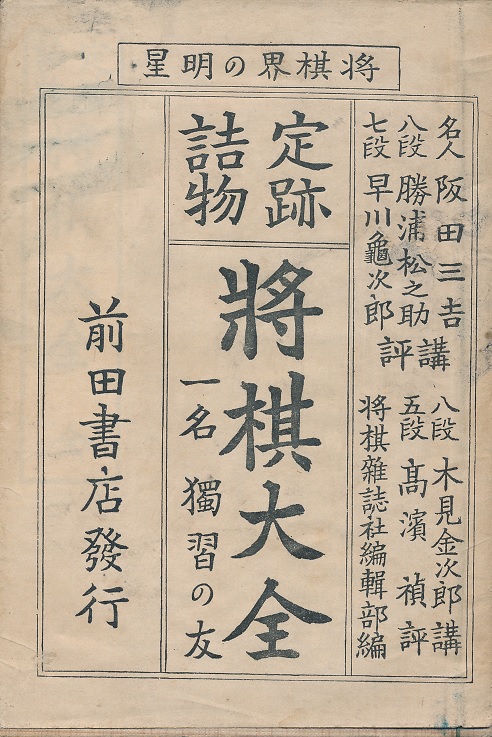 将棋界の明星
名人 阪田三吉
八段 勝浦松之助
七段 早川龜次郎
講評
八段 木見金次郎講
五段 髙濱禎評
将棋雜誌社編輯部編
定跡
詰物
將棋大全
一名 獨習の友
前田書店發行